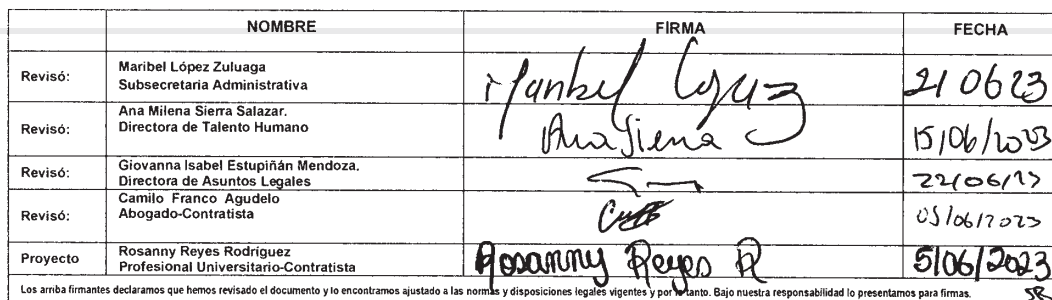 NOMBRE FIRMA FECHA
Revisó: Maribel López Zuluaga
Subsecretaria Administrativa Maribel López 21 06 23
Revisó: Ana Milena Sierra Salazar.
Directora de Talento Humano Ana Sierra 15/06/2023
Revisó: Giovanna Isabel Estupiñán Mendoza.
Directora de Asuntos Legales 22/06/23
Revisó: Camilo Franco Agudelo
Abogado-Contratista 05/06/2023
Proyecto Rosanny Reyes Rodríguez
Profesional Universitario-Contratista Rosanny Reyes R 5/06/2023
Los arriba firmantes declaramos que hemos revisado el documento y lo encontramos ajustado a las normas y disposiciones legales vigentes y por lo tanto. Bajo nuestra responsabilidad lo presentamos para firmas.